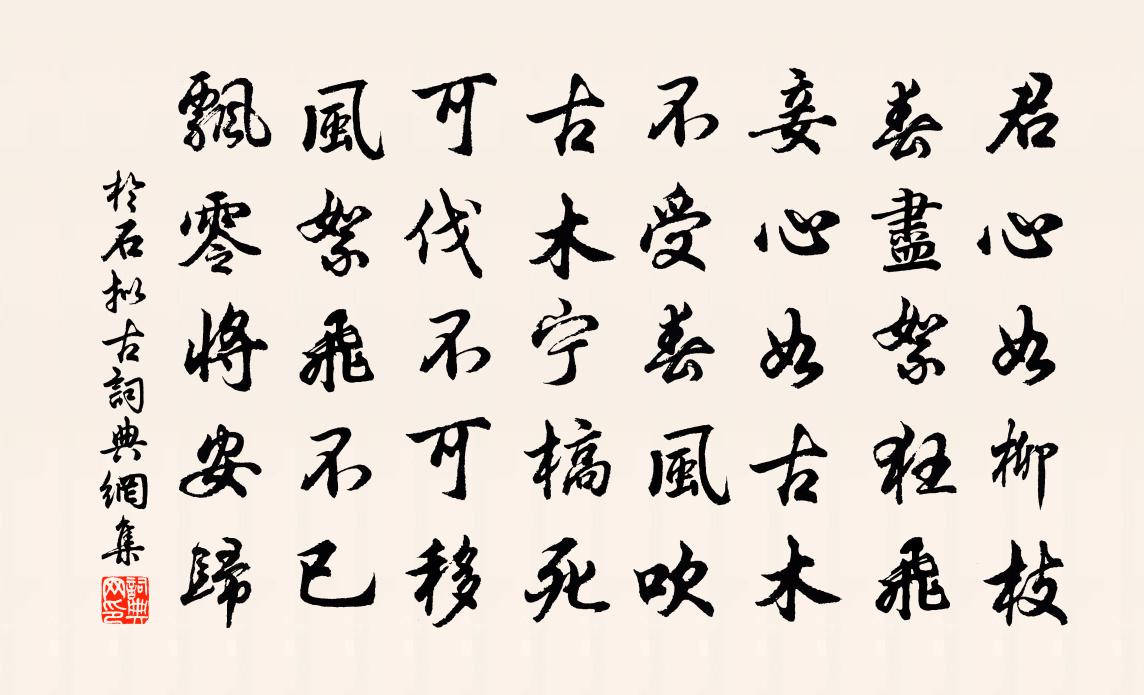 君心如柳枝
春盡絮狂飛
妾心如古木
不受春風吹
古木宁槁死
可伐不可移
風絮飛不已
飄零將安歸
於石拟古詞典網集
詞典网印